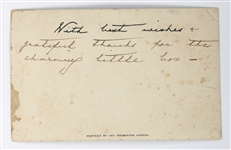 With best wishes &
grateful thanks for the
charming little box —